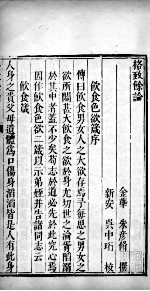 格致餘論
金華 朱彥修 撰
新安 吳中珩 校
飲食色欲箴序
傳曰飲食男女人之大欲存焉予每思之男女之
欲所關甚大飲食之欲於身尤切世之淪胥陷溺
於其中者蓋不少矣苟志於道必先於此究心焉
因作飲食色欲二箴以示弟姪並告諸同志云
飲食箴
人身之貴父母遺體為口傷身滔滔皆是人有此身